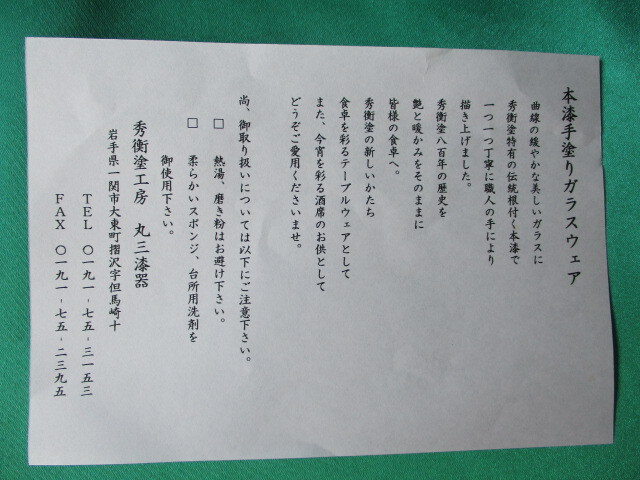 本漆手塗りガラスウェア
曲線の緩やかな美しいガラスに
秀衡塗特有の伝統根付く本漆で
一つ一つ丁寧に職人の手により
描き上げました。
秀衡塗八百年の歴史を
艶と暖かみをそのままに
皆様の食卓へ。
秀衡塗の新しいかたち
食卓を彩るテーブルウェアとして
また、今宵を彩る酒席のお供として
どうぞご愛用くださいませ。
尚、御取り扱いについては以下にご注意下さい。
□ 熱湯、磨き粉はお避け下さい。
□ 柔らかいスポンジ、台所用洗剤を
御使用下さい。
秀衡塗工房 丸三漆器
岩手県一関市大東町摺沢字但馬崎十
TEL 〇一九一-七五-三一五三
FAX 〇一九一-七五-二三九五